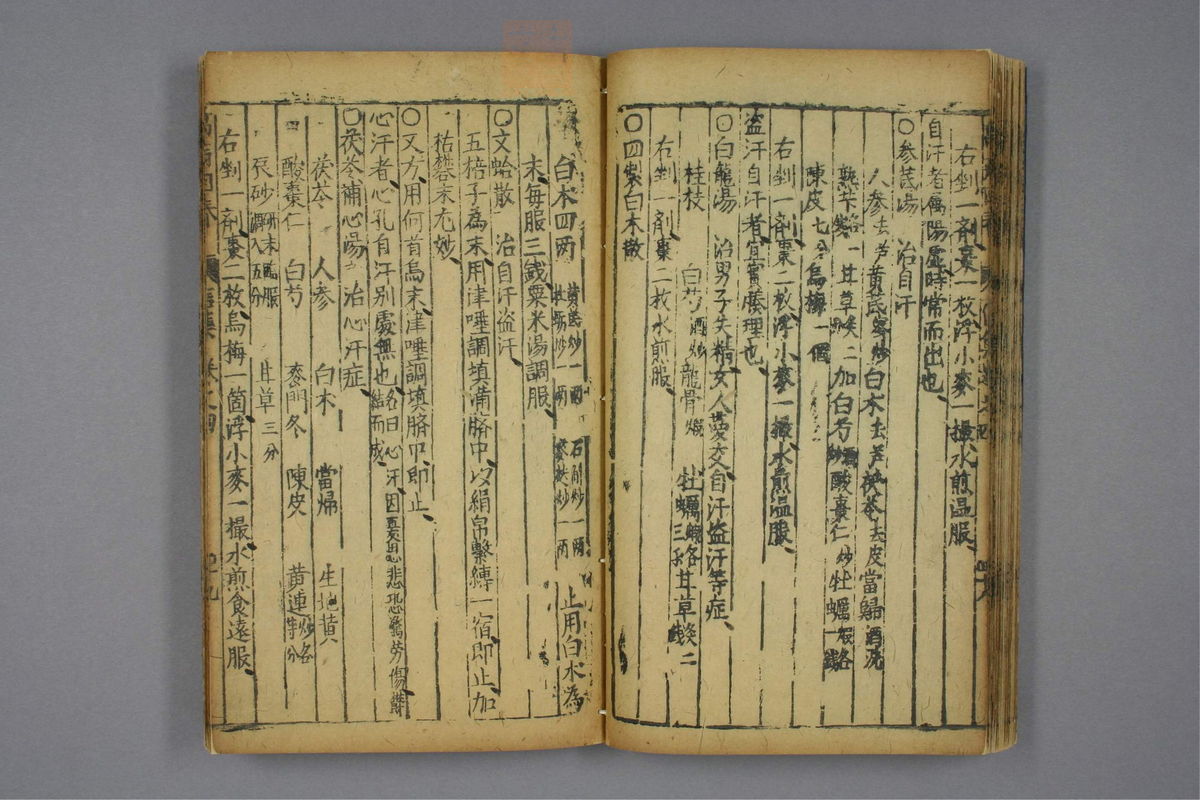 右剉一剤棗一枚浮小麥一撮水煎温服
自汗者屬陽虚時常而出也
〇参茋湯 治自汗
人参去芦黄茋蜜炒白术去芦茯苓去皮當歸酒洗
熟芐各一錢甘草炙二分加白芍酒炒酸棗仁炒牡蠣煅各一錢
陳皮七分烏梅一個
右剉一剤棗二枚浮小麥一撮水煎温服
盗汗自汗者宜實腠理也
〇白龍湯 治男子失精女人夢交自汗盗汗等症
桂枝 白芍酒炒 龍骨煅 牡蠣煅各三錢 甘草炙二錢
右剉一剤棗二枚水煎服
〇四製白术散
白术四兩 黄茋炒一兩 牡蠣炒一兩 石斛炒一兩 麥麩炒一兩 止用白术為
末毎服三錢粟米湯調服
〇文蛤散 治自汗盗汗
五棓子為末用津唾調填滿臍中以絹帛繫縛一宿即止加
枯礬末尤妙
〇又方用何首烏末津唾調填臍中即止
心汗者心孔有汗别處無也名曰心汗因憂思悲恐驚勞傷欝結而成
〇茯苓補心湯 治心汗症
茯苓 人参 白术 當歸 生地黄
酸棗仁 白芍 麥門冬 陳皮 黄連炒各等分
辰砂研末臨服調入五分 甘草三分
右剉一剤棗二枚烏梅一箇浮小麥一撮水煎食遠服